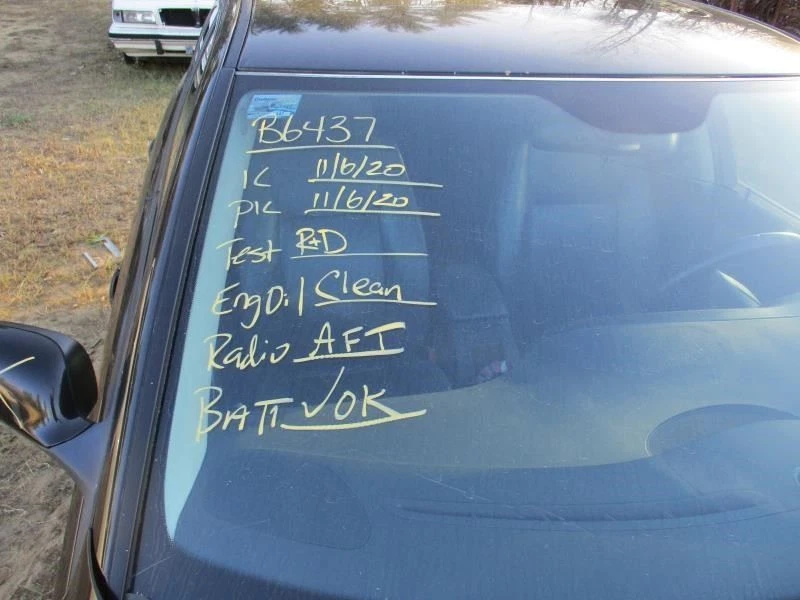 B6437
IC 11/6/20
PIC 11/6/20
Test R+D
Eng Oil Clean
Radio AFT
BATT √OK